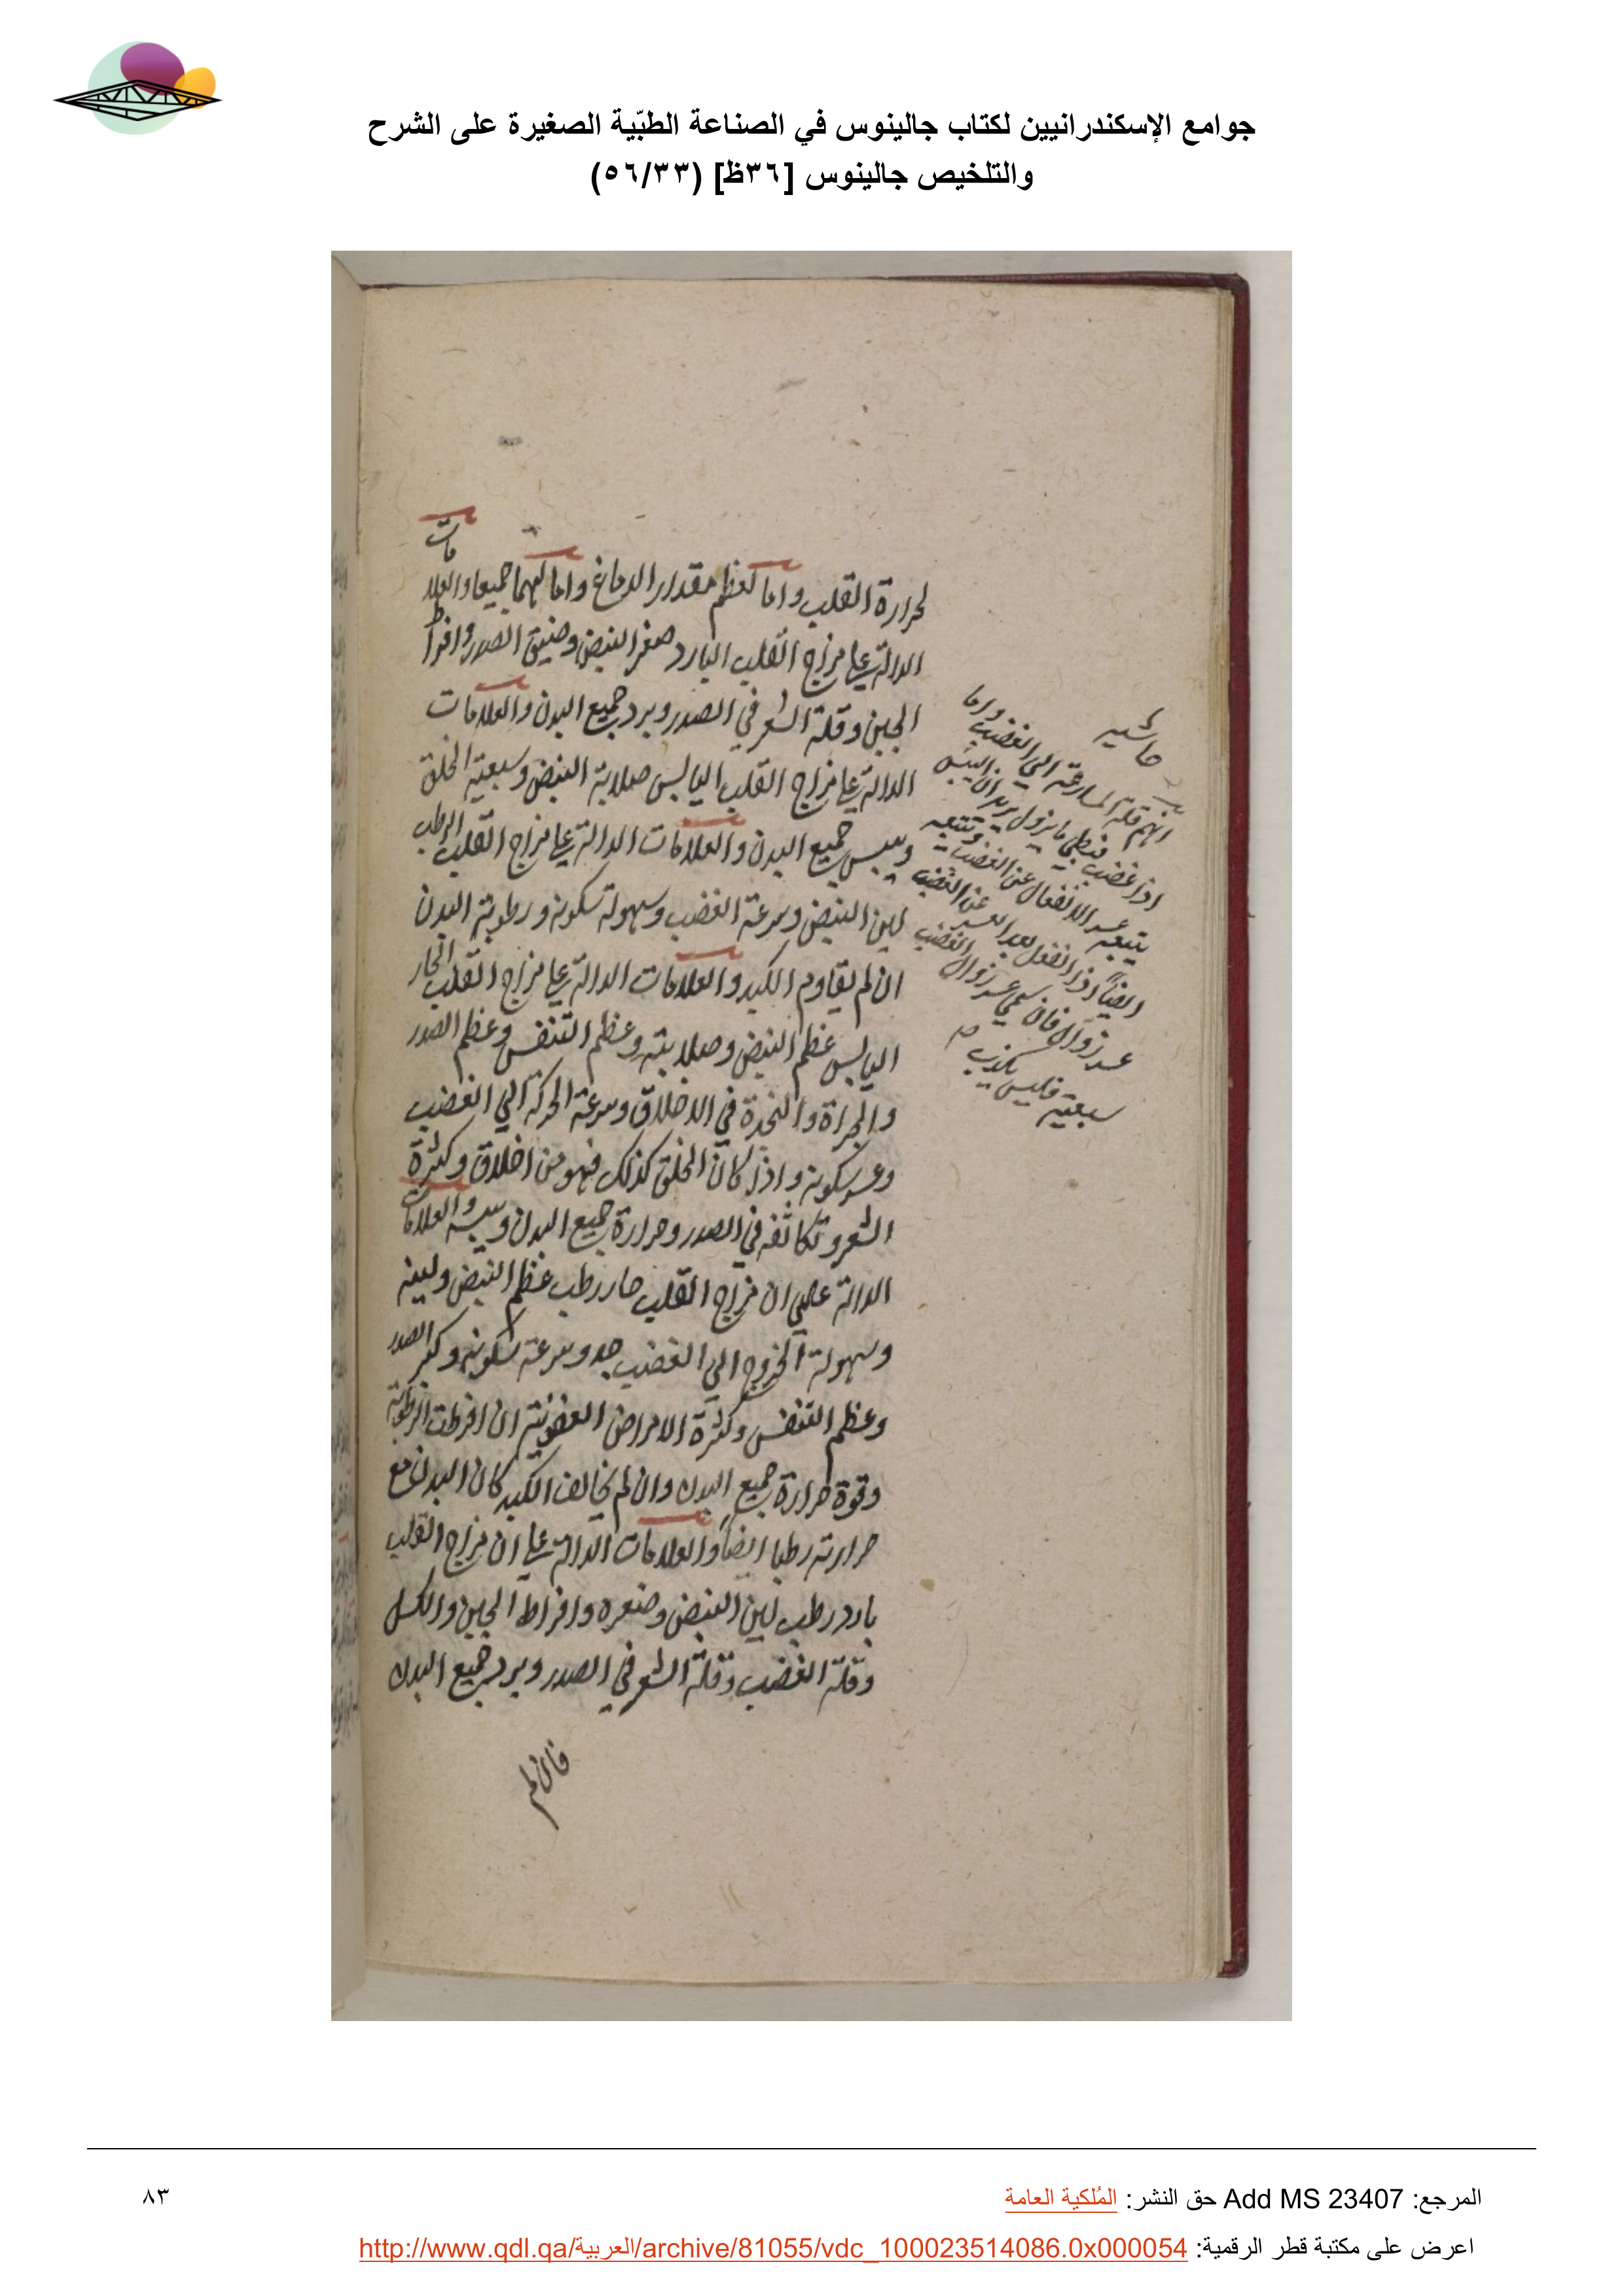 جوامع الإسكندرانيين لكتاب جالينوس في الصناعة الطبّية الصغيرة على الشرح
والتلخيص جالينوس [٣٦ظ] (٥٦/٣٣)
لحرارة القلب واما لعظم مقدار الدماغ واما لهما جميعا والعلا
مات
الدالة على مزاج القلب البارد صغر النبض وضيق الصدر وافراط
الجبن وقلة الشعر في الصدر وبرد جميع البدن والعلامات
الدالة على مزاج القلب اليابس صلابة النبض وسبعية الخلق
ويبس جميع البدن والعلامات الدالة على مزاج القلب الرطب
لين النبض وسرعة الغضب وسهولة سكونه ورطوبة البدن
ان لم يقاوم الكبد والعلامات الدالة على مزاج القلب الحار
اليابس عظم النبض وصلابته وعظم التنفس وعظم الصدر
والجراة والنجدة في الاخلاق وسرعة الحركة الي الغضب
وعسر سكونه واذا كان الخلق كذلك فهو من اخلاق وكثرة
الشعر وتكاثفه في الصدر وحرارة جميع البدن ويبسه والعلامات
الدالة علي ان مزاج القلب حار رطب عظم النبض ولينه
وسهولة الخروج الي الغضب جد وسرعة سكونه وكبر الصدر
وعظم التنفس وكثرة الامراض العفونية ان افرطت الرطوبة
وقوة حرارة جميع البدن وان لم يخالف الكبد كان البدن مع
حرارته رطبا ايضاً والعلامات الدالة على ان مزاج القلب
بارد رطب لين النبض وصغره وافراط الجبن والكسل
وقلة الغضب وقلة الشعر في الصدر وبرد جميع البدن
فان لم
حاشية
قلة المسارعة الي الغضب واما
اذا غضب فبطي ما يزول يريد ان اليبس
يتبعه عسر الانفعال عن الغضب ويتبعه
ايضاً اذا انفعل بعد العسر عن الغضب
عسر زواله فان سمي عسر زوال الغضب
سبعية فليس يكذب
المرجع: Add MS 23407 حق النشر: المُلكية العامة
٨٣
اعرض على مكتبة قطر الرقمية: http://www.qdl.qa/العربية/archive/81055/vdc_100023514086.0x000054